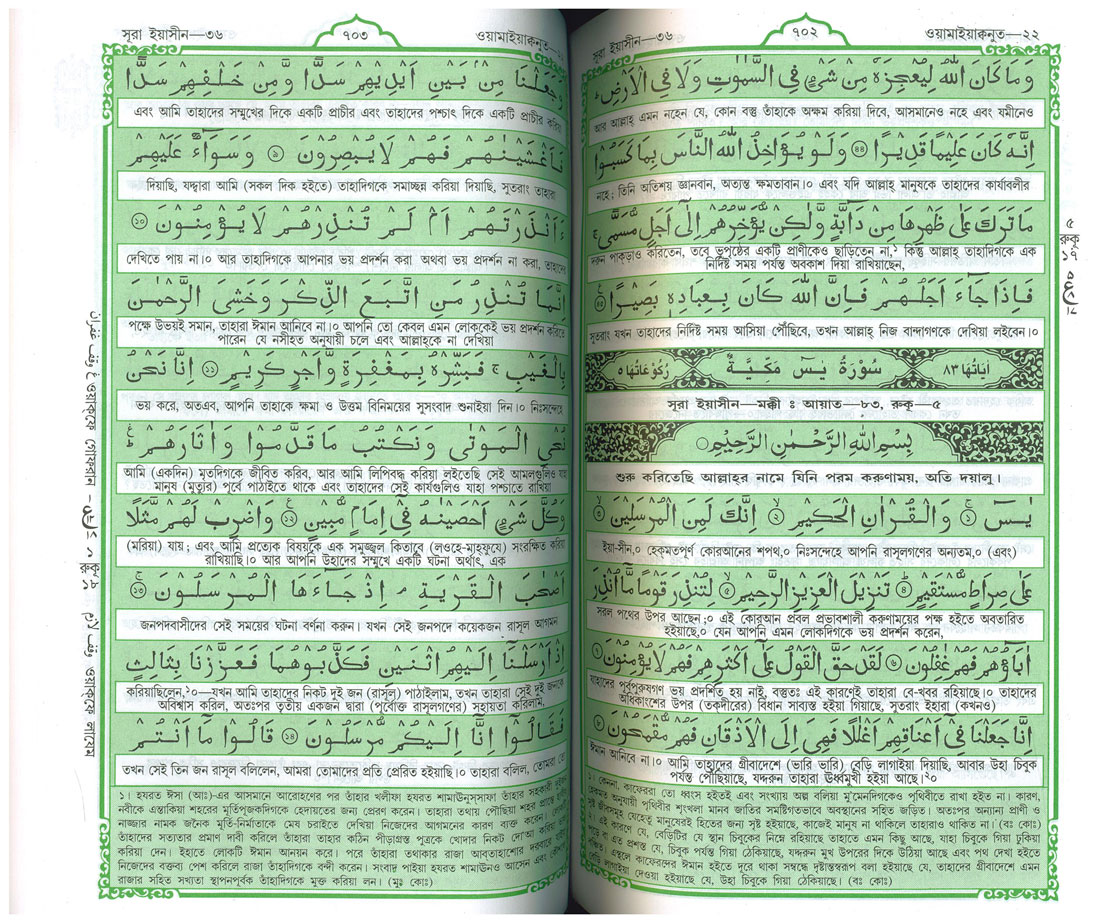 সূরা ইয়াসীন—৩৬ ৭০২ ওয়ামাইয়াক্বনুত—২২
وَمَا كَانَ اللّٰهُ لِيُعْجِزَهٗ مِنْ شَىْءٍ فِى السَّمٰوٰتِ وَلَا فِى الْاَرْضِ ؕ
আর আল্লাহ্ এমন নহেন যে, কোন বস্তু তাঁহাকে অক্ষম করিয়া দিবে, আসমানেও নহে এবং যমীনেও
اِنَّهٗ كَانَ عَلِيْمًا قَدِيْرًا ﴿٤٤﴾ وَلَوْ يُؤَاخِذُ اللّٰهُ النَّاسَ بِمَا كَسَبُوْا
নহে; তিনি অতিশয় জ্ঞানবান, অত্যন্ত ক্ষমতাবান।০ এবং যদি আল্লাহ্ মানুষকে তাহাদের কার্যাবলীর
مَا تَرَكَ عَلٰى ظَهْرِهَا مِنْ دَآبَّةٍ وَّلٰكِنْ يُّؤَخِّرُهُمْ اِلٰٓى اَجَلٍ مُّسَمًّى ۚ
দরুন পাকড়াও করিতেন, তবে ভূপৃষ্ঠের একটি প্রাণীকেও ছাড়িতেন না,১ কিন্তু আল্লাহ্ তাহাদিগকে এক
নির্দিষ্ট সময় পর্যন্ত অবকাশ দিয়া রাখিয়াছেন,
فَاِذَا جَآءَ اَجَلُهُمْ فَاِنَّ اللّٰهَ كَانَ بِعِبَادِهٖ بَصِيْرًا ﴿٤٥﴾
সুতরাং যখন তাহাদের নির্দিষ্ট সময় আসিয়া পৌঁছিবে, তখন আল্লাহ্ নিজ বান্দাগণকে দেখিয়া লইবেন।০
اٰيَاتُهَا ٨٣ سُوْرَةُ يٰسٓ مَكِّيَّةٌ رُكُوْعَاتُهَا ٥
সূরা ইয়াসীন—মক্কী : আয়াত—৮৩, রুকু—৫
بِسْمِ اللّٰهِ الرَّحْمٰنِ الرَّحِيْمِ
শুরু করিতেছি আল্লাহ্‌র নামে যিনি পরম করুণাময়, অতি দয়ালু।
يٰسٓ ﴿١﴾ وَالْقُرْاٰنِ الْحَكِيْمِ ﴿٢﴾ اِنَّكَ لَمِنَ الْمُرْسَلِيْنَ ﴿٣﴾
ইয়া-সীন,০ হেকমতপূর্ণ কোরআনের শপথ,০ নিঃসন্দেহে আপনি রাসূলগণের অন্যতম,০ (এবং)
عَلٰى صِرَاطٍ مُّسْتَقِيْمٍ ﴿٤﴾ تَنْزِيْلَ الْعَزِيْزِ الرَّحِيْمِ ﴿٥﴾ لِتُنْذِرَ قَوْمًا مَّآ اُنْذِرَ
সরল পথের উপর আছেন;০ এই কোরআন প্রবল প্রভাবশালী করুণাময়ের পক্ষ হইতে অবতারিত
হইয়াছে,০ যেন আপনি এমন লোকদিগকে ভয় প্রদর্শন করেন,
اٰبَآؤُهُمْ فَهُمْ غٰفِلُوْنَ ﴿٦﴾ لَقَدْ حَقَّ الْقَوْلُ عَلٰٓى اَكْثَرِهِمْ فَهُمْ لَا يُؤْمِنُوْنَ ﴿٧﴾
যাহাদের পূর্বপুরুষগণ ভয় প্রদর্শিত হয় নাই, বস্তুতঃ এই কারণেই তাহারা বে-খবর রহিয়াছে।০ তাহাদের
অধিকাংশের উপর (তক্‌দীরের) বিধান সাব্যস্ত হইয়া গিয়াছে, সুতরাং ইহারা (কখনও)
اِنَّا جَعَلْنَا فِىْٓ اَعْنَاقِهِمْ اَغْلٰلًا فَهِىَ اِلَى الْاَذْقَانِ فَهُمْ مُّقْمَحُوْنَ ﴿٨﴾
ঈমান আনিবে না।০ আমি তাহাদের গ্রীবাদেশে (ভারি ভারি) বেড়ি লাগাইয়া দিয়াছি, আবার উহা চিবুক
পর্যন্ত পৌঁছিয়াছে, যদ্দরুন তাহারা ঊর্ধ্বমুখী হইয়া আছে।২০
১। কেননা, কাফেররা তো ধ্বংস হইতেই এবং সংখ্যায় অল্প বলিয়া মু'মেনদিগকেও পৃথিবীতে রাখা হইত না। কারণ,
অনুযায়ী পৃথিবীর শৃংখলা মানব জাতির সমষ্টিগতভাবে অবস্থানের সহিত জড়িত। অতঃপর অন্যান্য প্রাণী ও
জীবসমূহ যেহেতু মানুষেরই হিতের জন্য সৃষ্ট হইয়াছে, কাজেই মানুষ না থাকিলে তাহারাও থাকিত না। (বঃ কোঃ)
এই কারণে যে, বেড়িটির যে স্থান চিবুকের নিম্নে রহিয়াছে তাহাতে এমন কিছু আছে, যাহা চিবুকে গিয়া ঢুকিয়া
বা এত প্রশস্ত যে, চিবুক পর্যন্ত গিয়া ঠেকিয়াছে, যদ্দরুন মুখ উপরের দিকে উঠিয়া আছে এবং পথ দেখা হইতে
এস্থলে কাফেরদের ঈমান হইতে দূরে থাকা সম্বন্ধে দৃষ্টান্তস্বরূপ বলা হইয়াছে যে, তাহাদের গ্রীবাদেশে এমন
লাগাইয়া দেওয়া হইয়াছে যে, উহা চিবুকে গিয়া ঠেকিয়াছে। (বঃ কোঃ)
৫
রুকূ
১৭
সূরা ইয়াসীন—৩৬ ৭০৩ ওয়ামাইয়াক্বনুত—
وَجَعَلْنَا مِنْۢ بَيْنِ اَيْدِيْهِمْ سَدًّا وَّمِنْ خَلْفِهِمْ سَدًّا
এবং আমি তাহাদের সম্মুখের দিকে একটি প্রাচীর এবং তাহাদের পশ্চাৎ দিকে একটি প্রাচীর করিয়া
فَاَغْشَيْنٰهُمْ فَهُمْ لَا يُبْصِرُوْنَ ﴿٩﴾ وَسَوَآءٌ عَلَيْهِمْ
দিয়াছি, যদ্দ্বারা আমি (সকল দিক হইতে) তাহাদিগকে সমাচ্ছন্ন করিয়া দিয়াছি, সুতরাং তাহারা
ءَاَنْذَرْتَهُمْ اَمْ لَمْ تُنْذِرْهُمْ لَا يُؤْمِنُوْنَ ﴿١٠﴾
দেখিতে পায় না।০ আর তাহাদিগকে আপনার ভয় প্রদর্শন করা অথবা ভয় প্রদর্শন না করা, তাহাদের
اِنَّمَا تُنْذِرُ مَنِ اتَّبَعَ الذِّكْرَ وَخَشِىَ الرَّحْمٰنَ
পক্ষে উভয়ই সমান, তাহারা ঈমান আনিবে না।০ আপনি তো কেবল এমন লোককেই ভয় প্রদর্শন করিতে
পারেন যে নসীহত অনুযায়ী চলে এবং আল্লাহ্‌কে না দেখিয়া
بِالْغَيْبِ ۚ فَبَشِّرْهُ بِمَغْفِرَةٍ وَّاَجْرٍ كَرِيْمٍ ﴿١١﴾ اِنَّا نَحْنُ
ভয় করে, অতএব, আপনি তাহাকে ক্ষমা ও উত্তম বিনিময়ের সুসংবাদ শুনাইয়া দিন।০ নিঃসন্দেহে
نُحْىِ الْمَوْتٰى وَنَكْتُبُ مَا قَدَّمُوْا وَاٰثَارَهُمْ ؕ
আমি (একদিন) মৃতদিগকে জীবিত করিব, আর আমি লিপিবদ্ধ করিয়া লইতেছি সেই আমলগুলিও যাহা
মানুষ (মৃত্যুর) পূর্বে পাঠাইতে থাকে এবং তাহাদের সেই কার্যগুলিও যাহা পশ্চাতে রাখিয়া
وَكُلَّ شَىْءٍ اَحْصَيْنٰهُ فِىْٓ اِمَامٍ مُّبِيْنٍ ﴿١٢﴾ وَاضْرِبْ لَهُمْ مَّثَلًا
(মরিয়া) যায়; এবং আমি প্রত্যেক বিষয়কে এক সমুজ্জ্বল কিতাবে (লওহে-মাহ্‌ফূযে) সংরক্ষিত করিয়া
রাখিয়াছি।০ আর আপনি উহাদের সম্মুখে একটি ঘটনা অর্থাৎ, এক
اَصْحٰبَ الْقَرْيَةِ ۘ اِذْ جَآءَهَا الْمُرْسَلُوْنَ ﴿١٣﴾
জনপদবাসীদের সেই সময়ের ঘটনা বর্ণনা করুন। যখন সেই জনপদে কয়েকজন রাসূল আগমন
اِذْ اَرْسَلْنَآ اِلَيْهِمُ اثْنَيْنِ فَكَذَّبُوْهُمَا فَعَزَّزْنَا بِثَالِثٍ
করিয়াছিলেন,১০—যখন আমি তাহাদের নিকট দুই জন (রাসূল) পাঠাইলাম, তখন তাহারা সেই দুই জনকে
অবিশ্বাস করিল, অতঃপর তৃতীয় একজন দ্বারা (পূর্বোক্ত রাসূলগণের) সহায়তা করিলাম,
فَقَالُوْٓا اِنَّآ اِلَيْكُمْ مُّرْسَلُوْنَ ﴿١٤﴾ قَالُوْا مَآ اَنْتُمْ
তখন সেই তিন জন রাসূল বলিলেন, আমরা তোমাদের প্রতি প্রেরিত হইয়াছি।০ তাহারা বলিল, তোমরা তো
১। হযরত ঈসা (আঃ)-এর আসমানে আরোহণের পর তাঁহার খলীফা হযরত শামাঊনুস্‌সাফা তাঁহার সহকারী দুইজন
নবীকে এন্তাকিয়া শহরের মূর্তিপূজকদিগকে হেদায়তের জন্য প্রেরণ করেন। তাহারা তথায় পৌঁছিয়া শহর প্রান্তে
নাজ্জার নামক জনৈক মূর্তি-নির্মাতাকে মেষ চরাইতে দেখিয়া নিজেদের আগমনের কারণ ব্যক্ত করেন।
তাহাদের সত্যতার প্রমাণ দাবী করিলে তাঁহারা তাহার কঠিন পীড়াগ্রস্ত পুত্রকে খোদার নিকট দো'আ করিয়া
করিয়া দেন। ইহাতে লোকটি ঈমান আনয়ন করে। পরে তাঁহারা তথাকার রাজা আবতাহাশের দরবারে
নিজেদের বক্তব্য পেশ করিলে রাজা তাঁহাদিগকে বন্দী করেন। সংবাদ পাইয়া হযরত শামাঊনও আসেন এবং
রাজার সহিত সখ্যতা স্থাপনপূর্বক তাঁহাদিগকে মুক্ত করিয়া লন। (মুঃ কোঃ)
وقف غفران ওয়াক্‌ফে গোফরান
রুকূ
১৮
وقف لازم ওয়াক্‌ফে লাযেম